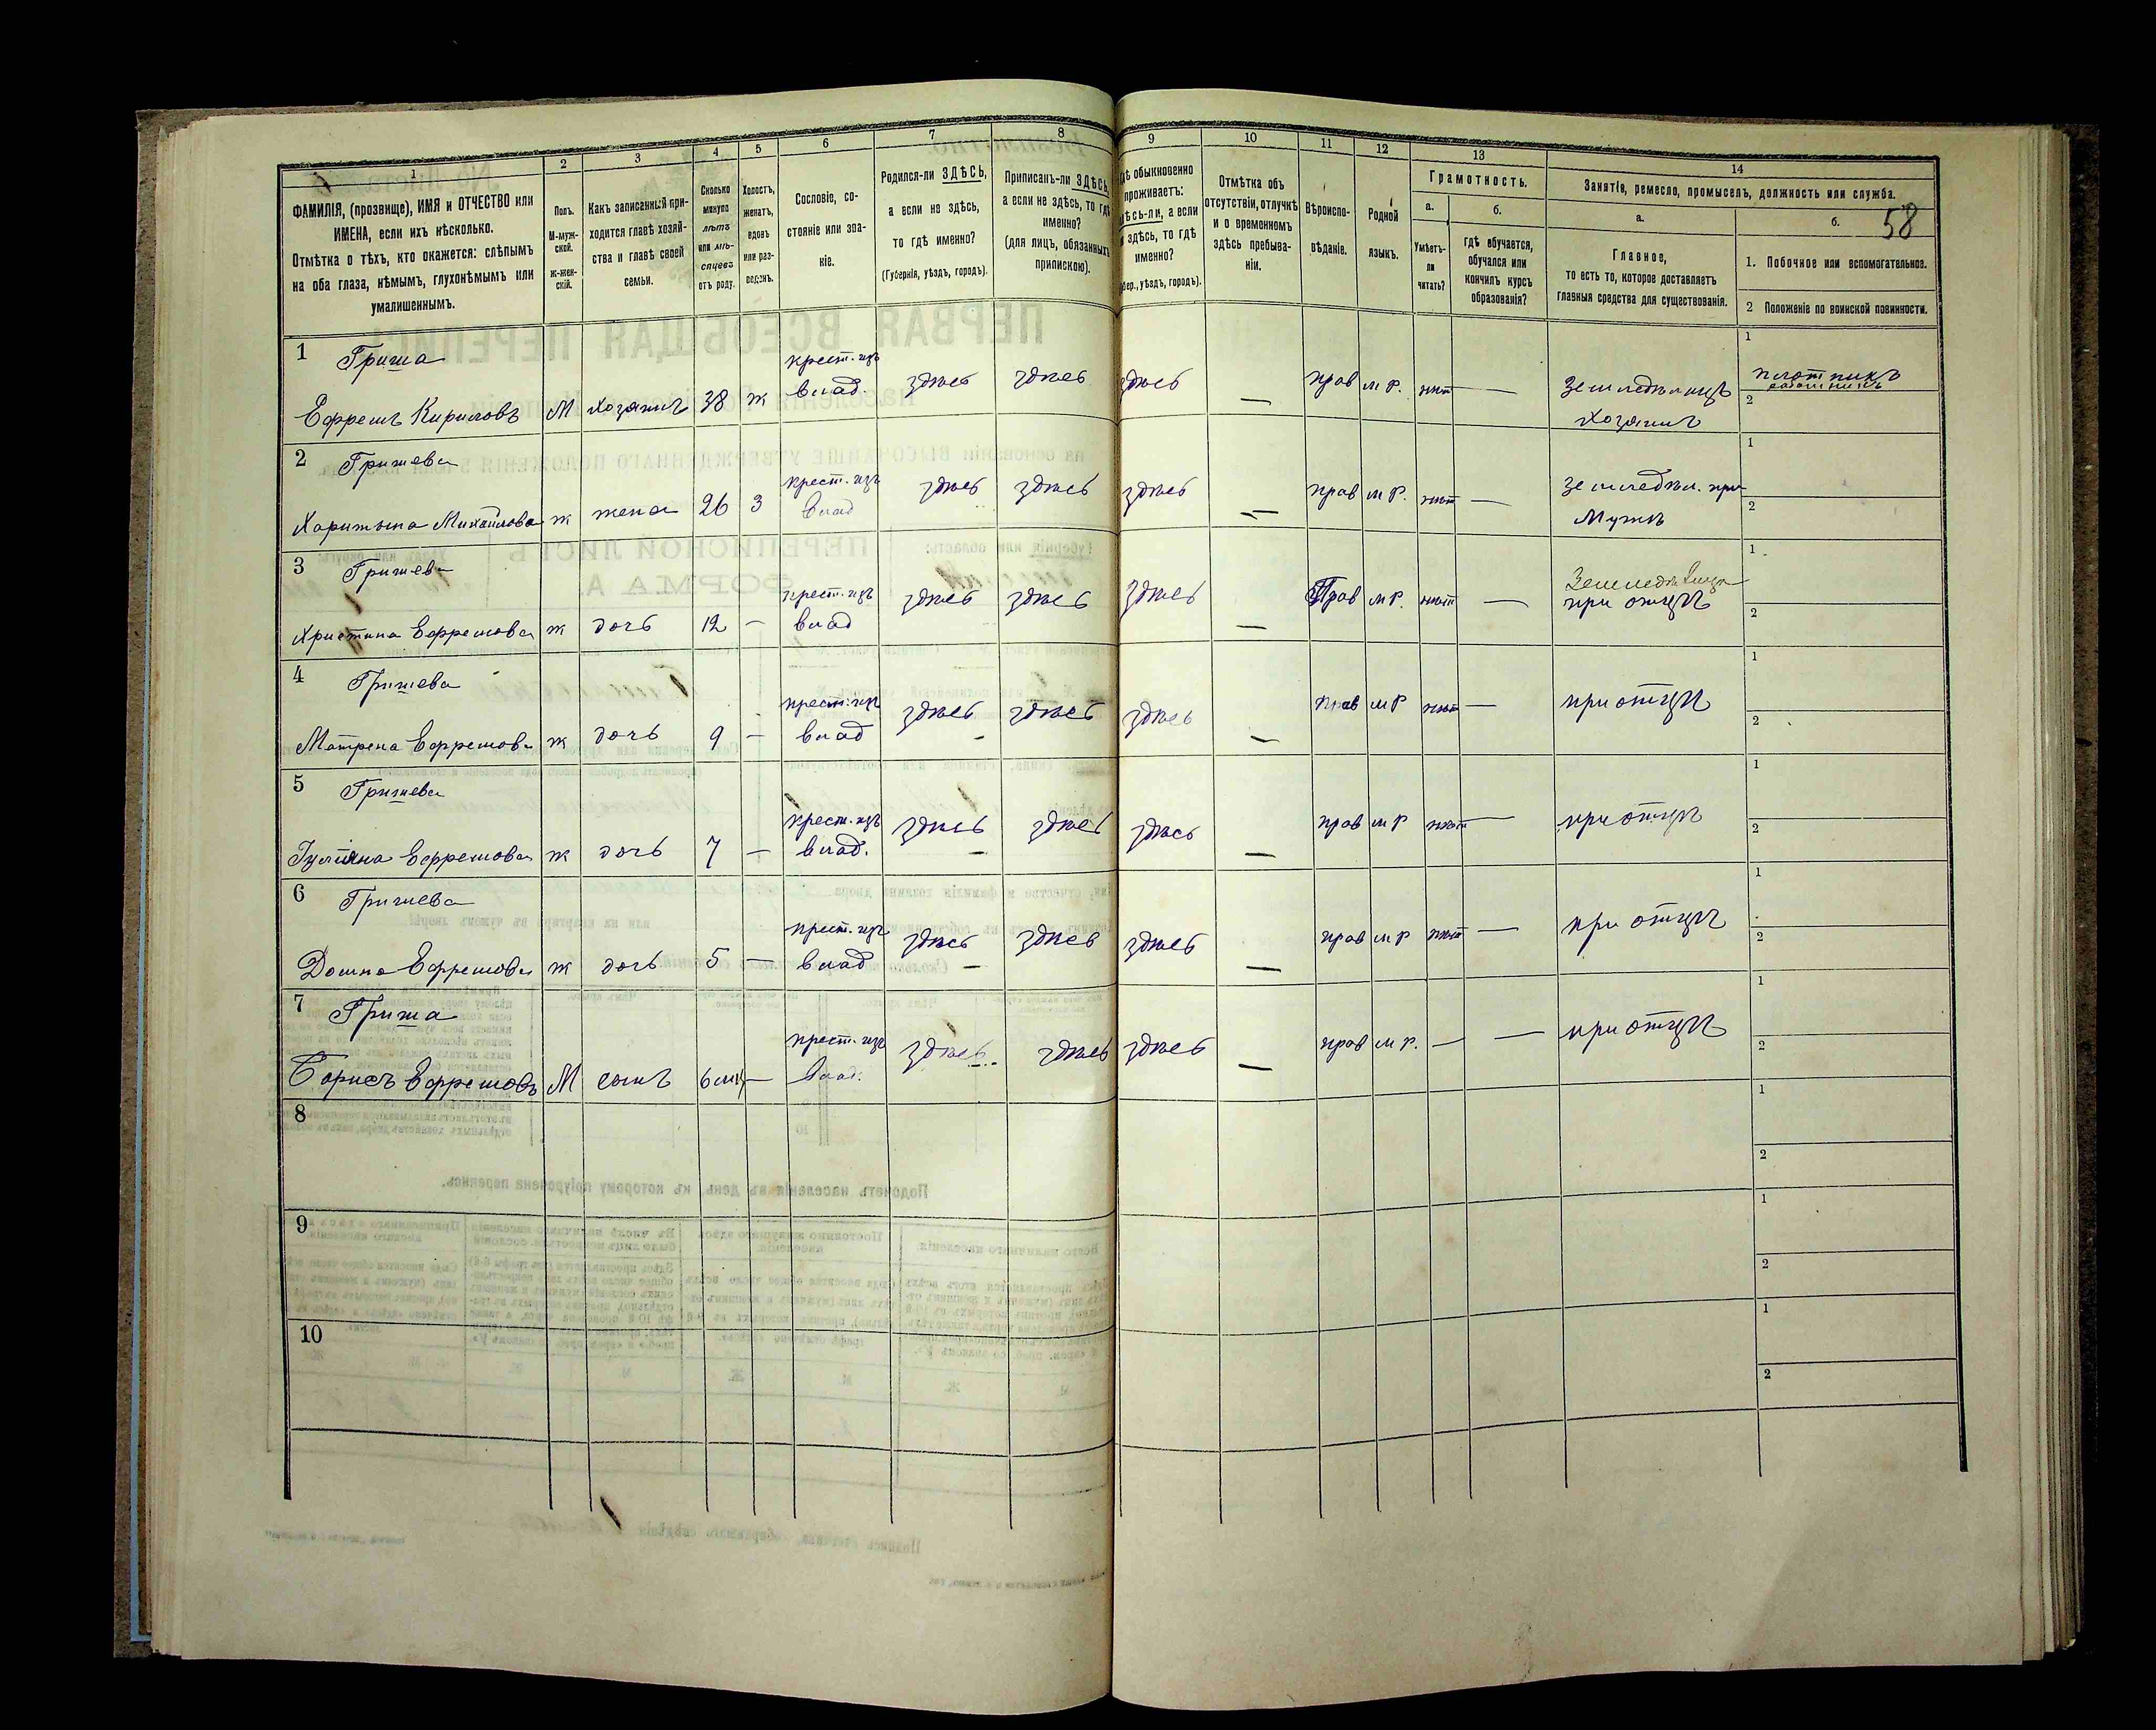 1
2
3
4
5
6
7
8
9
10
11
12
13
14
ФАМИЛІЯ, (прозвище), ИМЯ и ОТЧЕСТВО или
ИМЕНА, если ихъ нѣсколько.
Отмѣтка о тѣхъ, кто окажется: слѣпымъ
на оба глаза, нѣмымъ, глухонѣмымъ или
умалишеннымъ.
Полъ.
М-муж-
ской.
ж-жен-
скій.
Какъ записанный при-
ходится главѣ хозяй-
ства и главѣ своей
семьи.
Сколько
минуло
лѣтъ
или мѣ-
сяцевъ
отъ роду.
Холостъ,
женатъ,
вдовъ
или раз-
веденъ.
Сословіе, со-
стояніе или зва-
ніе.
Родился-ли ЗДѢСЬ,
а если не здѣсь,
то гдѣ именно?
(Губернія, уѣздъ, городъ).
Приписанъ-ли ЗДѢСЬ,
а если не здѣсь, то гдѣ
именно?
(для лицъ, обязанныхъ
припискою).
обыкновенно
проживаетъ:
а если
здѣсь, то гдѣ
именно?
уѣздъ, городъ).
Отмѣтка объ
отсутствіи, отлучкѣ
и о временномъ
здѣсь пребыва-
ніи.
Вѣроиспо-
вѣданіе.
Родной
языкъ.
Грамотность.
а.
Умѣетъ-
ли
читать?
б.
гдѣ обучается,
обучался или
кончилъ курсъ
образованія?
Занятіе, ремесло, промыселъ, должность или служба.
а.
Главное,
то есть то, которое доставляетъ
главныя средства для существованія.
б.
58
1. Побочное или вспомогательное.
2 Положеніе по воинской повинности.
1 Гриша крест. изъ 1
Ефремъ Кириловъ М хозяинъ 38 ж влад. здѣсь здѣсь здѣсь — прав м р. нѣт — Земледѣлецъ плотникъ
хозяинъ 2
2 Гришева крест. изъ 1
Харитына Михайлова ж жена 26 З влад здѣсь здѣсь здѣсь — прав м р. нѣт — Земледѣл. при
Мужѣ 2
3 Гришева крест. изъ 1
Христина Ефремова ж дочь 12 — влад здѣсь здѣсь здѣсь — Прав м р. нѣт —
при отцѣ 2
4 Гришева крест. изъ 1
Матрена Ефремова ж дочь 9 — влад здѣсь здѣсь здѣсь — прав м р нѣт — при отцѣ 2
5 Гришева крест. изъ 1
Ефремова ж дочь 7 — влад. здѣсь здѣсь здѣсь — прав м р нѣт — при отцѣ 2
6 Гришева крест. изъ 1
Домна Ефремова ж дочь 5 — влад здѣсь здѣсь здѣсь — прав м р нѣт — при отцѣ 2
7 Гриша крест. изъ 1
Борисъ Ефремовъ М сынъ 6 — влад. здѣсь здѣсь здѣсь — прав м р. — — при отцѣ 2
8 1
2
9 1
2
10 1
2